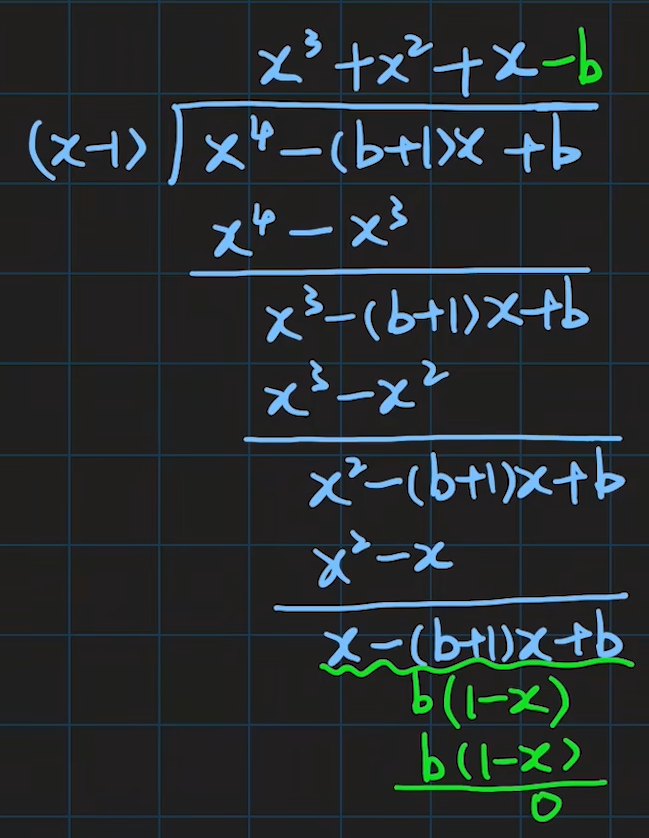 x³+x²+x-b
(x-1) x⁴-(b+1)x+b
x⁴-x³
x³-(b+1)x+b
x³-x²
x²-(b+1)x+b
x²-x
x-(b+1)x+b
b(1-x)
b(1-x)
0